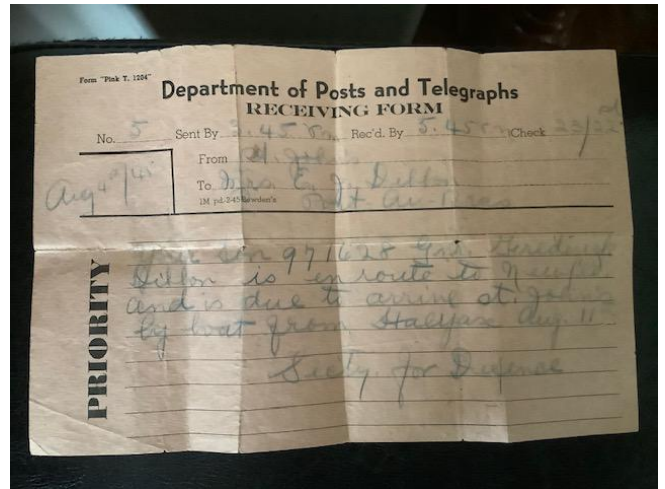 Form "Pink T. 1204"
Department of Posts and Telegraphs
RECEIVING FORM
No. 5 Sent By 2.45 Pm Rec'd. By 5.45 Pm Check 23/22
Aug 4th/45
From St. John's
To Mrs E. J. Dillon
1M pd.-3-45 Bowden's
PRIORITY
Your son 971628 Gnr.
Dillon is en route to Newfld
and is due to arrive St. John's
by boat from Halyfax Aug. 11
Secty for Defence